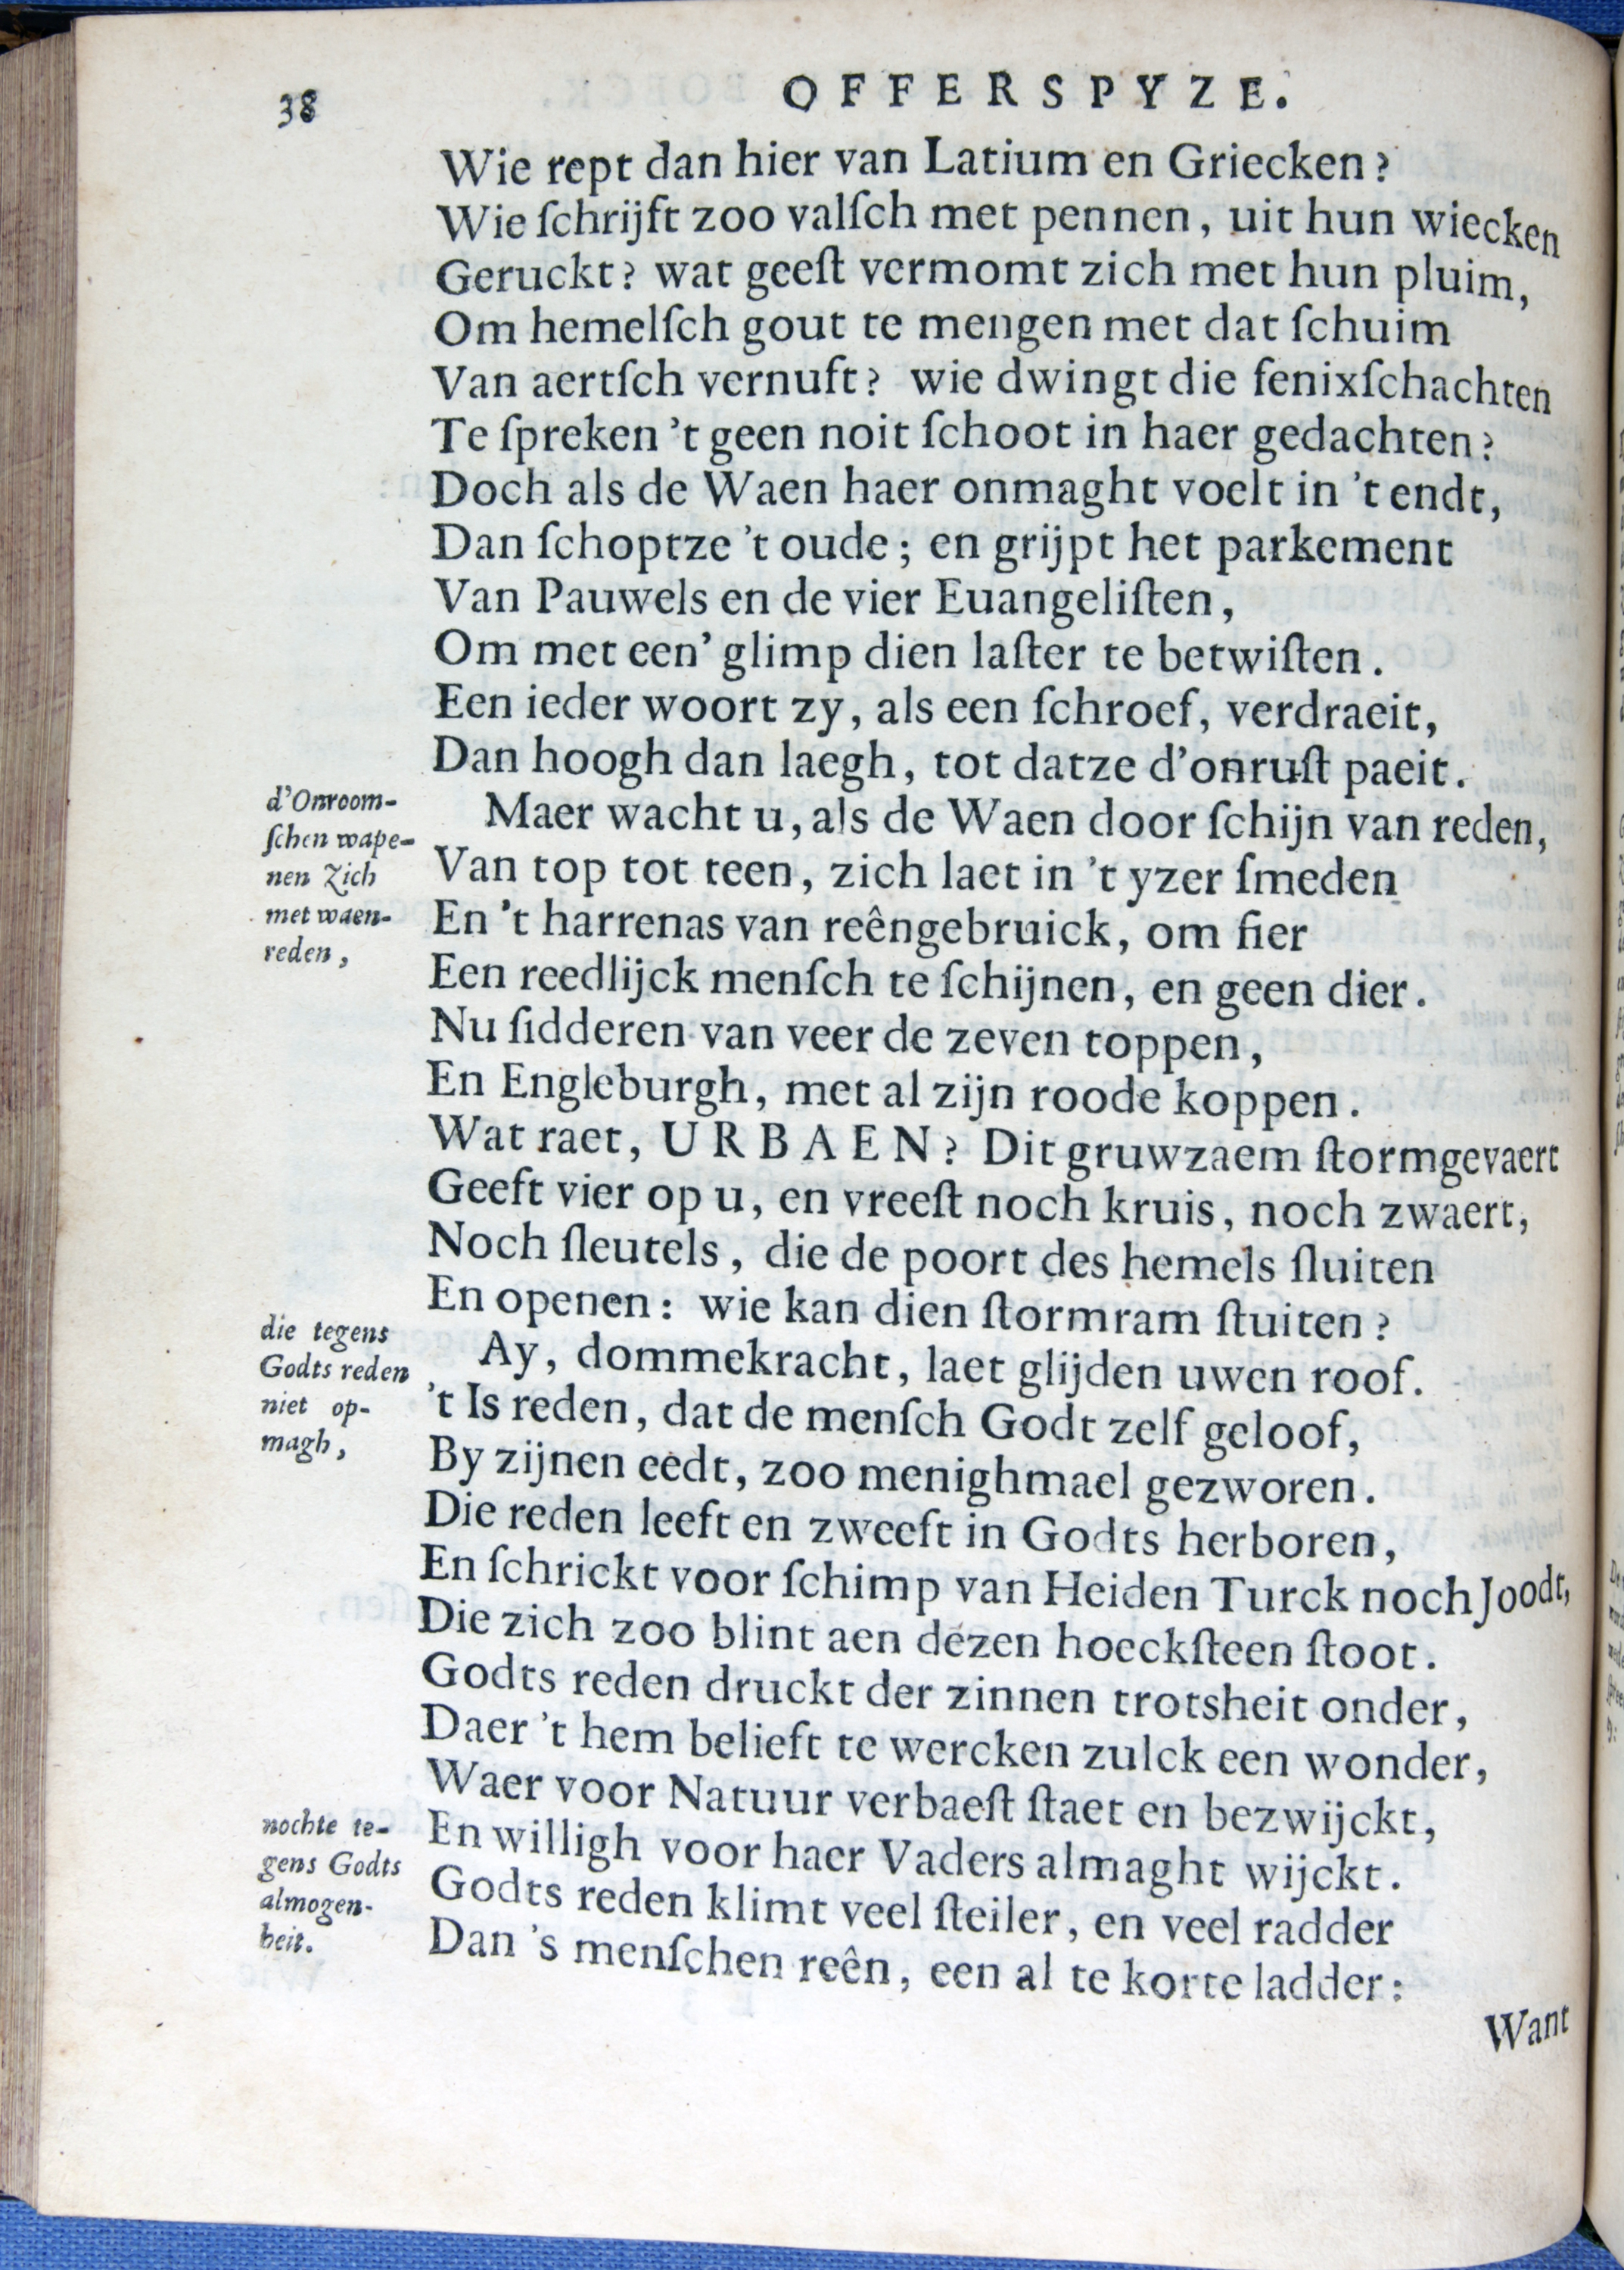 38
OFFERSPYZE.
Wie rept dan hier van Latium en Griecken?
Wie ſchrijft zoo valſch met pennen, uit hun wiecken
Geruckt? wat geeſt vermomt zich met hun pluim,
Om hemelſch gout te mengen met dat ſchuim
Van aertſch vernuft? wie dwingt die fenixſchachten
Te ſpreken 't geen noit ſchoot in haer gedachten?
Doch als de Waen haer onmaght voelt in 't endt,
Dan ſchoptze 't oude; en grijpt het parkement
Van Pauwels en de vier Euangeliſten,
Om met een' glimp dien laſter te betwiſten.
Een ieder woort zy, als een ſchroef, verdraeit,
Dan hoogh dan laegh, tot datze d'onruſt paeit.
d'Onroom-
ſchen wape-
nen zich
met waen-
reden,
Maer wacht u, als de Waen door ſchijn van reden,
Van top tot teen, zich laet in 't yzer ſmeden
En 't harrenas van reêngebruick, om fier
Een reedlijck menſch te ſchijnen, en geen dier.
Nu ſidderen van veer de zeven toppen,
En Engleburgh, met al zijn roode koppen.
Wat raet, URBAEN? Dit gruwzaem ſtormgevaert
Geeft vier op u, en vreeſt noch kruis, noch zwaert,
Noch ſleutels, die de poort des hemels ſluiten
En openen: wie kan dien ſtormram ſtuiten?
die tegens
Godts reden
niet op-
magh,
Ay, dommekracht, laet glijden uwen roof.
't Is reden, dat de menſch Godt zelf geloof,
By zijnen eedt, zoo menighmael gezworen.
Die reden leeft en zweeft in Godts herboren,
En ſchrickt voor ſchimp van Heiden Turck noch Joodt,
Die zich zoo blint aen dezen hoeckſteen ſtoot.
Godts reden druckt der zinnen trotsheit onder,
Daer 't hem belieft te wercken zulck een wonder,
Waer voor Natuur verbaeſt ſtaet en bezwijckt,
En willigh voor haer Vaders almaght wijckt.
nochte te-
gens Godts
almogen-
heit.
Godts reden klimt veel ſteiler, en veel radder
Dan 's menſchen reên, een al te korte ladder:
Want